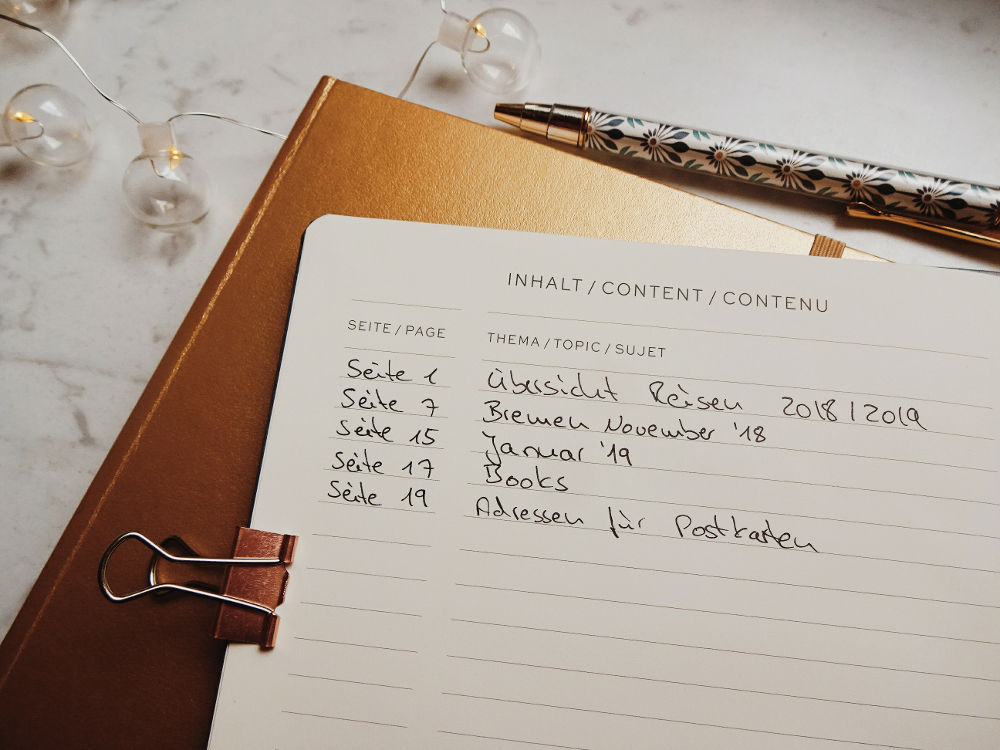 INHALT / CONTENT / CONTENU
SEITE / PAGE THEMA / TOPIC / SUJET
Seite 1 Übersicht Reisen 2018 | 2019
Seite 7 Bremen November '18
Seite 15 Januar '19
Seite 17 Books
Seite 19 Adressen für Postkarten